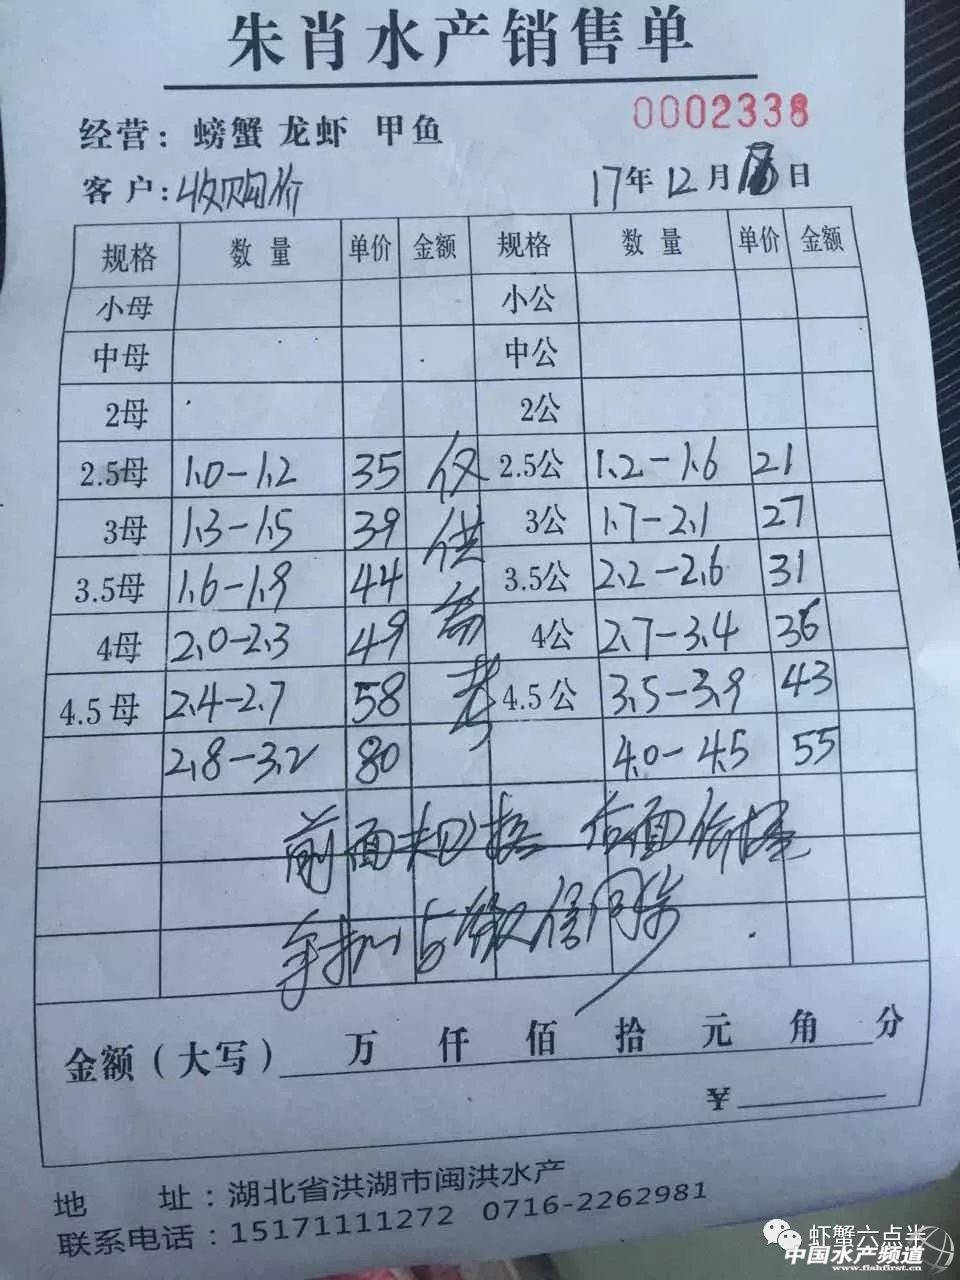 朱肖水产销售单
0002338
经营：螃蟹 龙虾 甲鱼
客户：收购价 17年12月日
规格 数量 单价 金额 规格 数量 单价 金额
小母 小公
中母 中公
2母 2公
2.5母 1.0-1.2 35 仅 2.5公 1.2-1.6 21
3母 1.3-1.5 39 供 3公 1.7-2.1 27
3.5母 1.6-1.9 44 3.5公 2.2-2.6 31
4母 2.0-2.3 49 4公 2.7-3.4 36
4.5母 2.4-2.7 58 考 4.5公 3.5-3.9 43
2.8-3.2 80 4.0-4.5 55
前面规格 后面价格
手机与微信同步
金额（大写） 万 仟 佰 拾 元 角 分
¥
地 址：湖北省洪湖市闽洪水产
联系电话：15171111272 0716-2262981
虾蟹六点半
中国水产频道
www.fishfirst.cn